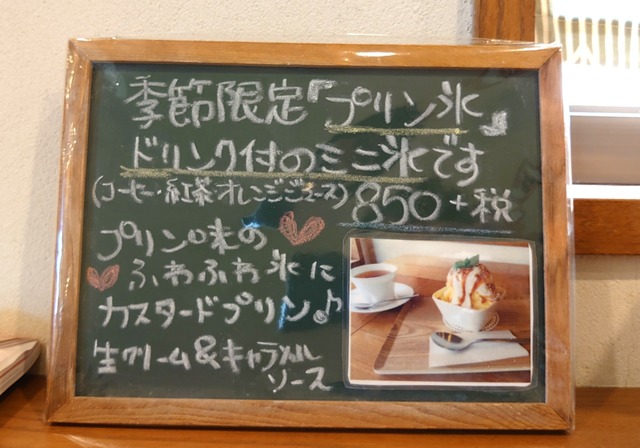 季節限定『プリン氷』
ドリンク付のミニ氷です
(コーヒー・紅茶・オレンジジュース) 850+税
プリン味の
ふわふわ氷に
カスタードプリン♪
生クリーム&キャラメル
ソース